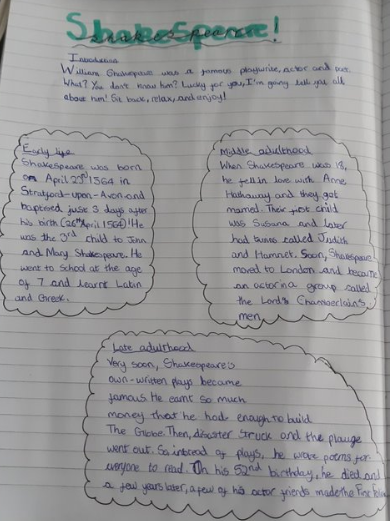 Shakespeare!
Introduction
William Shakespeare was a famous playwrite, actor and poet.
What? You don't know him? Lucky for you, I'm going tell you all
about him! Sit back, relax, and enjoy!
Early life
Shakespeare was born
on April 23rd 1564 in
Stratford-upon-Avon and
baptised just 3 days after
his birth (26th April 1564)! He
was the 3rd child to John
and Mary Shakespeare. He
went to School at the age
of 7 and learnt Latin
and Greek.
Middle adulthood
When Shakespeare was 18,
he fell in love with Anne
Hathaway and they got
married. Their first child
was Susana and later
had twins called Judith
and Hamnet. Soon, Shakespeare
moved to London and became
an actor in a group called
the Lord's Chamberlain's
men.
Late adulthood
Very soon, Shakespeare's
own-written plays became
famous. He earnt so much
money that he had enough to build
The Globe. Then, disaster struck and the plauge
went out. So instead of plays, he wrote poems for
everyone to read. On his 52nd birthday, he died and
a few years later, a few of his actor friends made the First